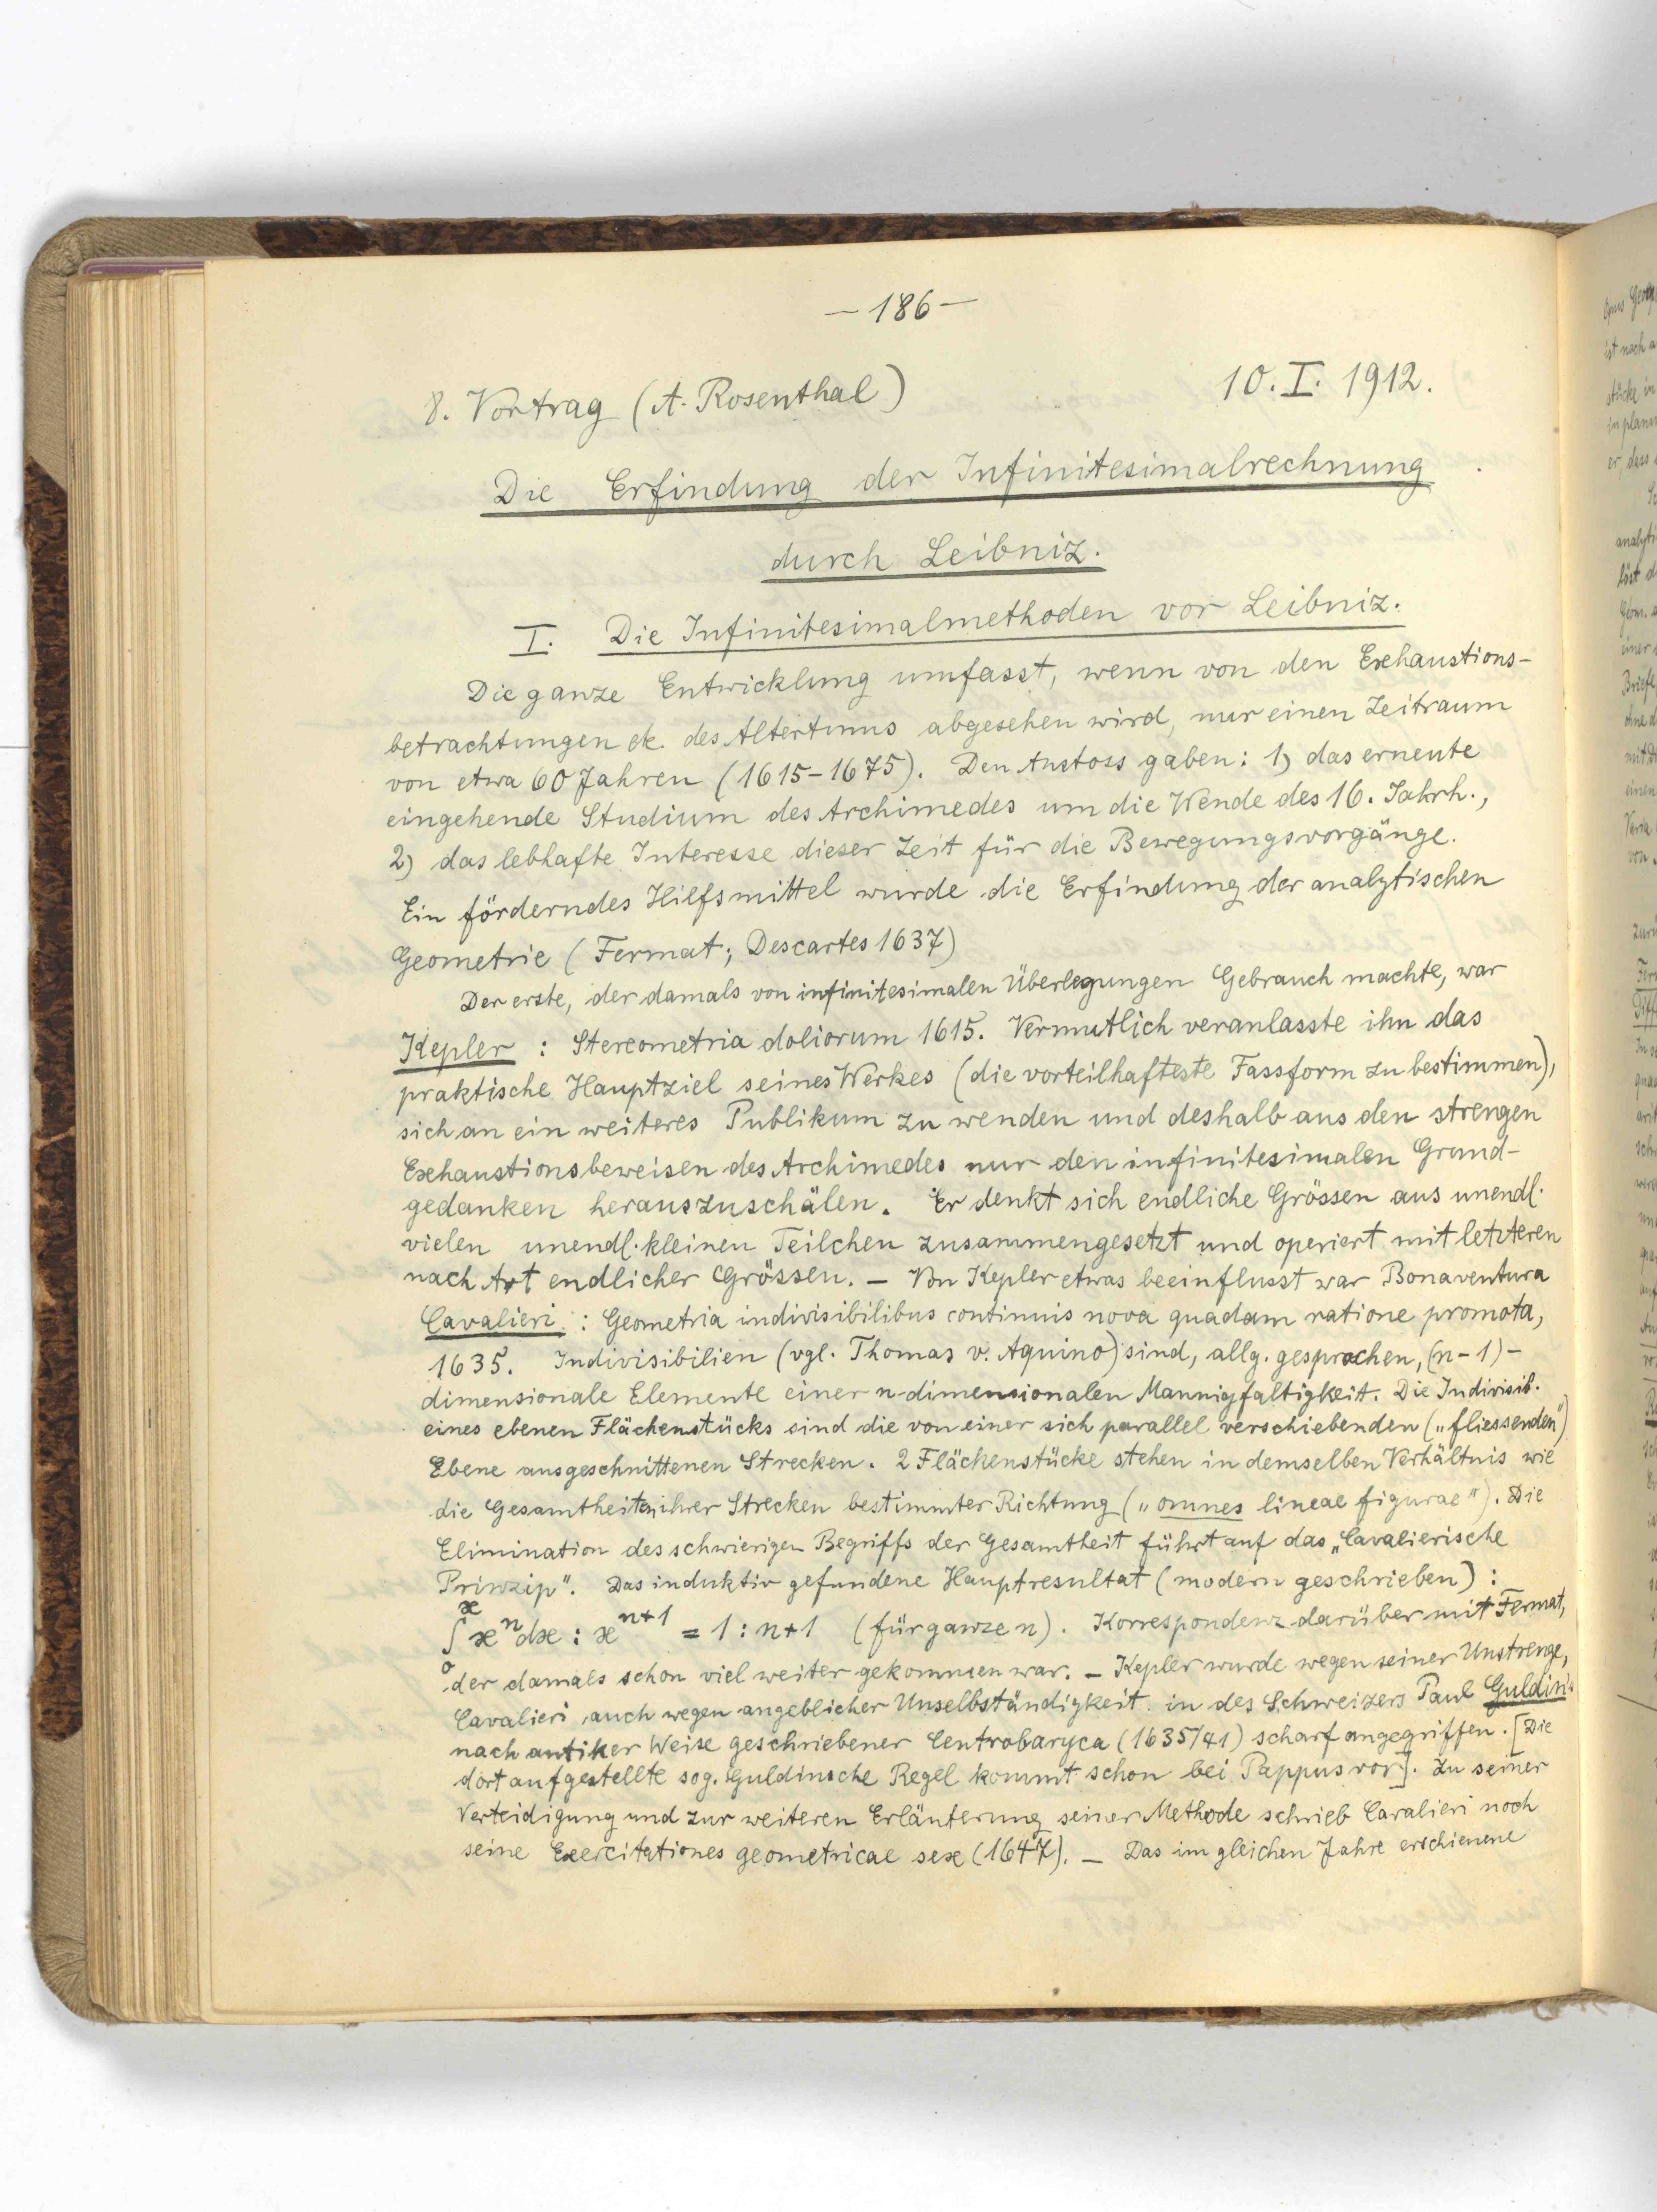 — 186 —
8. Vortrag (A. Rosenthal)
10. I. 1912.
Die Erfindung der Infinitesimalrechnung
durch Leibniz.
I. Die Infinitesimalmethoden vor Leibniz.
Die ganze Entwicklung umfasst, wenn von den Exhaustions-
betrachtungen etc. des Altertums abgesehen wird, nur einen Zeitraum
von etwa 60 Jahren (1615–1675). Den Anstoss gaben: 1) das erneute
eingehende Studium des Archimedes um die Wende des 16. Jahrh.,
2) das lebhafte Interesse dieser Zeit für die Bewegungsvorgänge.
Ein förderndes Hilfsmittel wurde die Erfindung der analytischen
Geometrie (Fermat; Descartes 1637)
Der erste, der damals von infinitesimalen Überlegungen Gebrauch machte, war
Kepler : Stereometria doliorum 1615. Vermutlich veranlasste ihn das
praktische Hauptziel seines Werkes (die vorteilhafteste Fassform zu bestimmen),
sich an ein weiteres Publikum zu wenden und deshalb aus den strengen
Exhaustionsbeweisen des Archimedes nur den infinitesimalen Grund-
gedanken herauszuschälen. Er denkt sich endliche Grössen aus unendl.
vielen unendl. kleinen Teilchen zusammengesetzt und operiert mit letzteren
nach Art endlicher Grössen. – Von Kepler etwas beeinflusst war Bonaventura
Cavalieri : Geometria indivisibilibus continuis nova quadam ratione promota,
1635. Indivisibilien (vgl. Thomas v. Aquino) sind, allg. gesprochen, (n-1)-
dimensionale Elemente einer n-dimensionalen Mannigfaltigkeit. Die Indivisib.
eines ebenen Flächenstücks sind die von einer sich parallel verschiebenden („fliessenden")
Ebene ausgeschnittenen Strecken. 2 Flächenstücke stehen in demselben Verhältnis wie
die Gesamtheiten ihrer Strecken bestimmter Richtung („omnes lineae figurae"). Die
Elimination des schwierigen Begriffs der Gesamtheit führt auf das „Cavalierische
Prinzip". Das induktiv gefundene Hauptresultat (modern geschrieben) :
∫₀ˣ xⁿdx : xⁿ⁺¹ = 1 : n+1 (für ganze n). Korrespondenz darüber mit Fermat,
der damals schon viel weiter gekommen war. – Kepler wurde wegen seiner Unstrenge,
Cavalieri auch wegen angeblicher Unselbständigkeit in des Schweizers Paul Guldin's
nach antiker Weise geschriebener Centrobaryca (1635/41) scharf angegriffen. [Die
dort aufgestellte sog. Guldinsche Regel kommt schon bei Pappus vor]. Zu seiner
Verteidigung und zur weiteren Erläuterung seiner Methode schrieb Cavalieri noch
seine Exercitationes geometricae sex (1647). – Das im gleichen Jahre erschienene